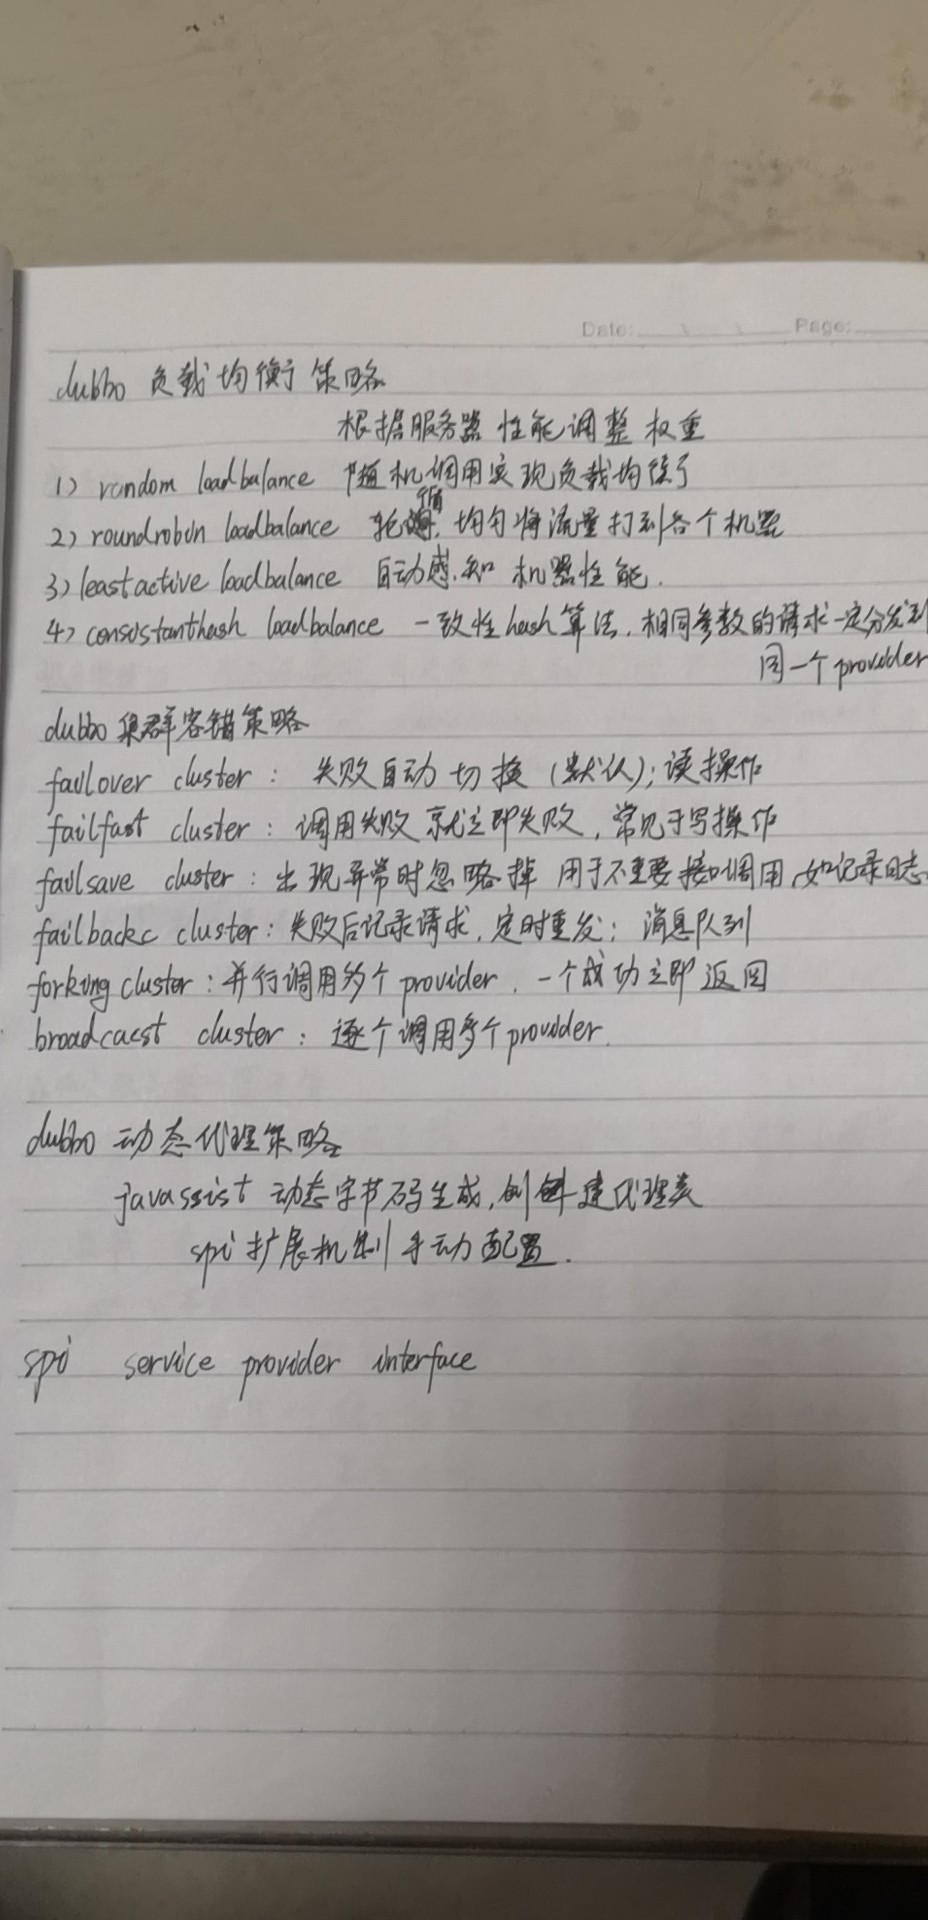 Date: Page:
dubbo 负载均衡策略
根据服务器性能调整权重
1) random loadbalance 随机调用实现负载均衡
2) roundrobin loadbalance 轮循, 均匀将流量打到各个机器
3) leastactive loadbalance 自动感知 机器性能.
4) consistanthash loadbalance 一致性hash算法, 相同参数的请求一定分发到
同一个provider
dubbo 集群容错策略
failover cluster : 失败自动切换 (默认); 读操作
failfast cluster : 调用失败就立即失败, 常见于写操作
failsave cluster : 出现异常时忽略掉 用于不重要接口调用,如记录日志.
failback cluster : 失败后记录请求, 定时重发; 消息队列
forking cluster : 并行调用多个 provider, 一个成功立即返回
broadcast cluster : 逐个调用多个provider.
dubbo 动态代理策略
javassist 动态字节码生成, 创建代理类
spi 扩展机制 手动配置.
spi service provider interface